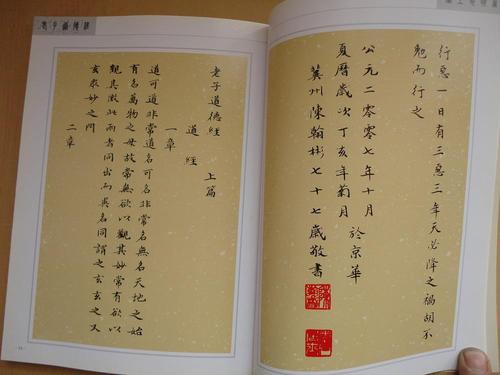 行惡一日有三惡三年天必降之禍胡不
勉而行之
公元二零零七年十月
夏曆歲次丁亥年菊月於京華
冀州陳翰彬七十七歲敬書
老子道德經 上篇
道經
一章
道可道非常道名可名非常名無名天地之始
有名萬物之母故常無欲以觀其妙常有欲以
觀其徼此兩者同出而異名同謂之玄玄之又
玄衆妙之門
二章